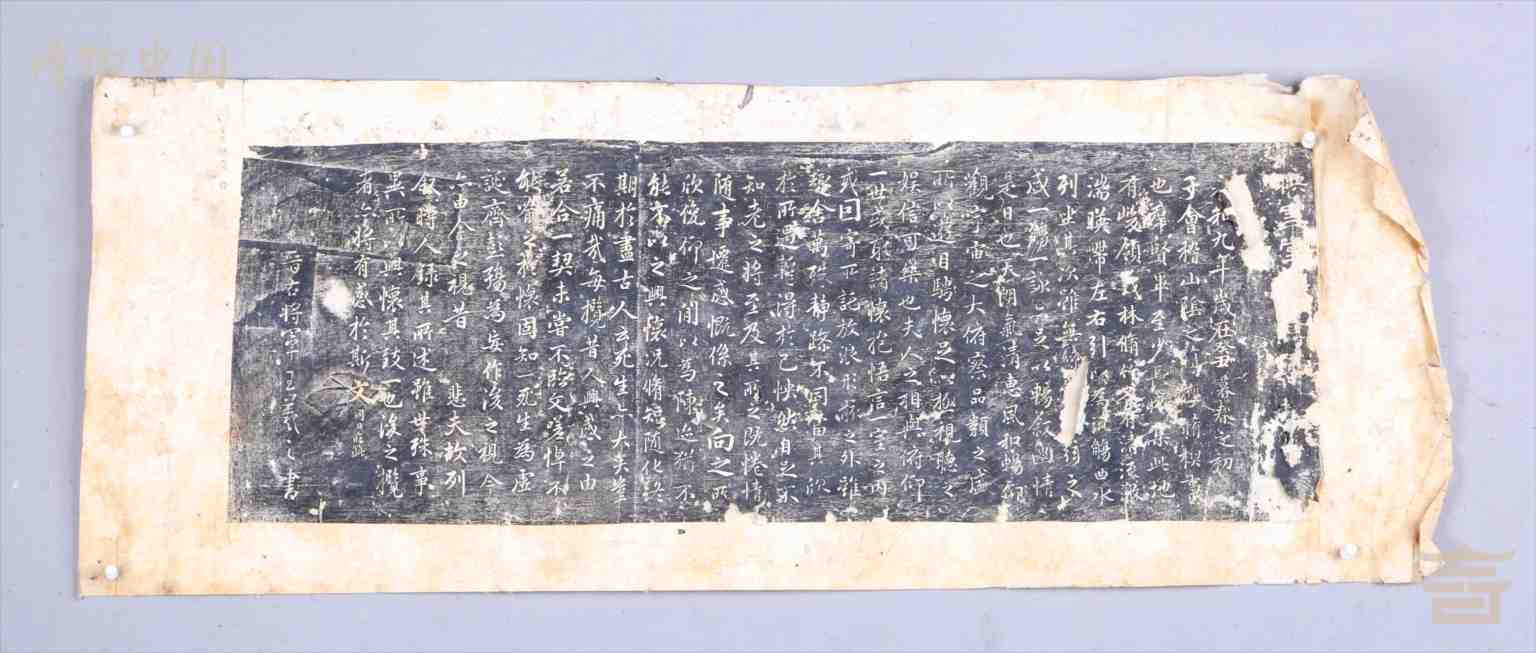 和九年歲在癸丑暮春之初
會稽山陰之脩禊事
也羣賢畢至少長咸集此地
有領茂林脩竹有清流激
湍暎帶左右引以為流觴曲水
列坐其次雖無絲之
盛一觴一詠亦足以暢叙幽情
是日也天朗氣清惠風和暢仰
觀宇宙之大俯察品類之盛
所以遊目騁懷足以極視聽之
娛信可樂也夫人之相與俯仰
一世或取諸懷抱悟言一室之內
或因寄所託放浪形骸之外雖
趣舍萬殊静躁不同當其欣
於所遇暫得於己怏然自足不
知老之將至及其所之既惓情
隨事遷感慨係之矣向之所
欣俛仰之閒以為陳迹猶不
能不以之興懷況脩短隨化終
期於盡古人云死生亦大矣豈
不痛哉每攬昔人興感之由
若合一契未嘗不臨文嗟悼不
能喻之於懷固知一死生為虛
誕齊彭殤為妄作後之視今
亦由今之視昔悲夫故列
叙時人錄其所述雖世殊事
異所以興懷其致一也後之攬
者亦將有感於斯文
晉右將軍王羲之書
博物中国